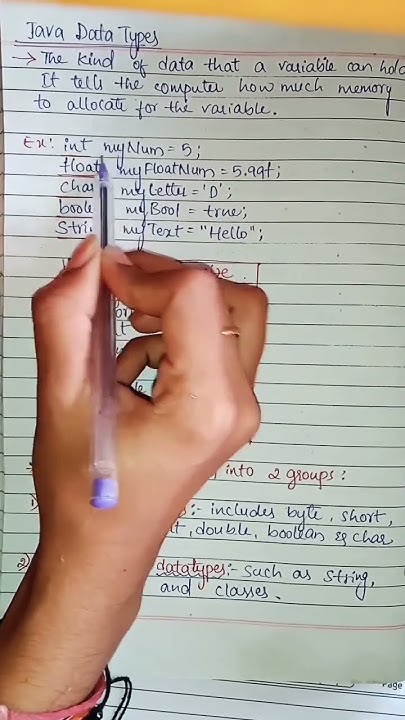 Java Data Types
→ The kind of data that a variable can hold
It tells the computer how much memory
to allocate for the variable.
Ex: int myNum = 5;
float myFloatNum = 5.99f;
char myLetter = 'D';
boole myBool = true;
Strin myText = "Hello";
into 2 groups :
1) :- includes byte, short,
, double, boolean & char
2) datatypes :- such as string,
and classes.
Page